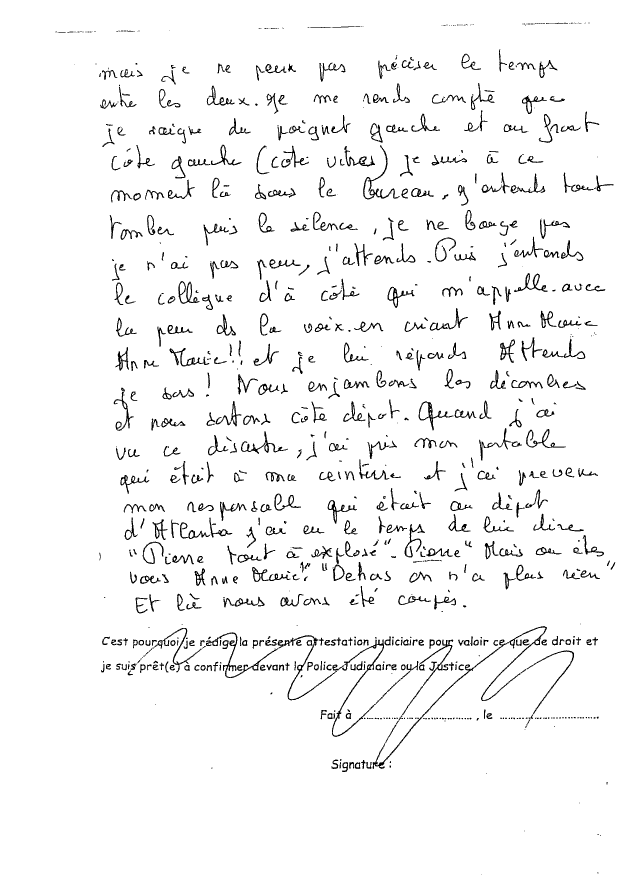 mais je ne peux pas préciser le temps
entre les deux. Je me rends compte que
je saigne du poignet gauche et au front
côté gauche (côté vitres) je suis à ce
moment là sous le bureau, j'entends tout
tomber puis le silence, je ne bouge pas
je n'ai pas peur, j'attends. Puis j'entends
le collègue d'à côté qui m'appelle avec
la peur ds la voix en criant Anne Marie
Anne Marie!! et je lui réponds Attends
je sors! Nous enjambons les décombres
et nous sortons côté dépot. Quand j'ai
vu ce désastre, j'ai pris mon portable
qui était à ma ceinture et j'ai prevenu
mon responsable qui était au dépot
d'Atlanta j'ai eu le temps de lui dire
"Pierre tout à explosé". Pierre "Mais ou êtes
vous Anne Marie?" "Dehors on n'a plus rien"
Et là nous avons été coupés.
C'est pourquoi je rédige la présente attestation judiciaire pour valoir ce que de droit et
je suis prêt(e) à confirmer devant la Police Judiciaire ou la Justice.
Fait à ................................, le ............................
Signature :